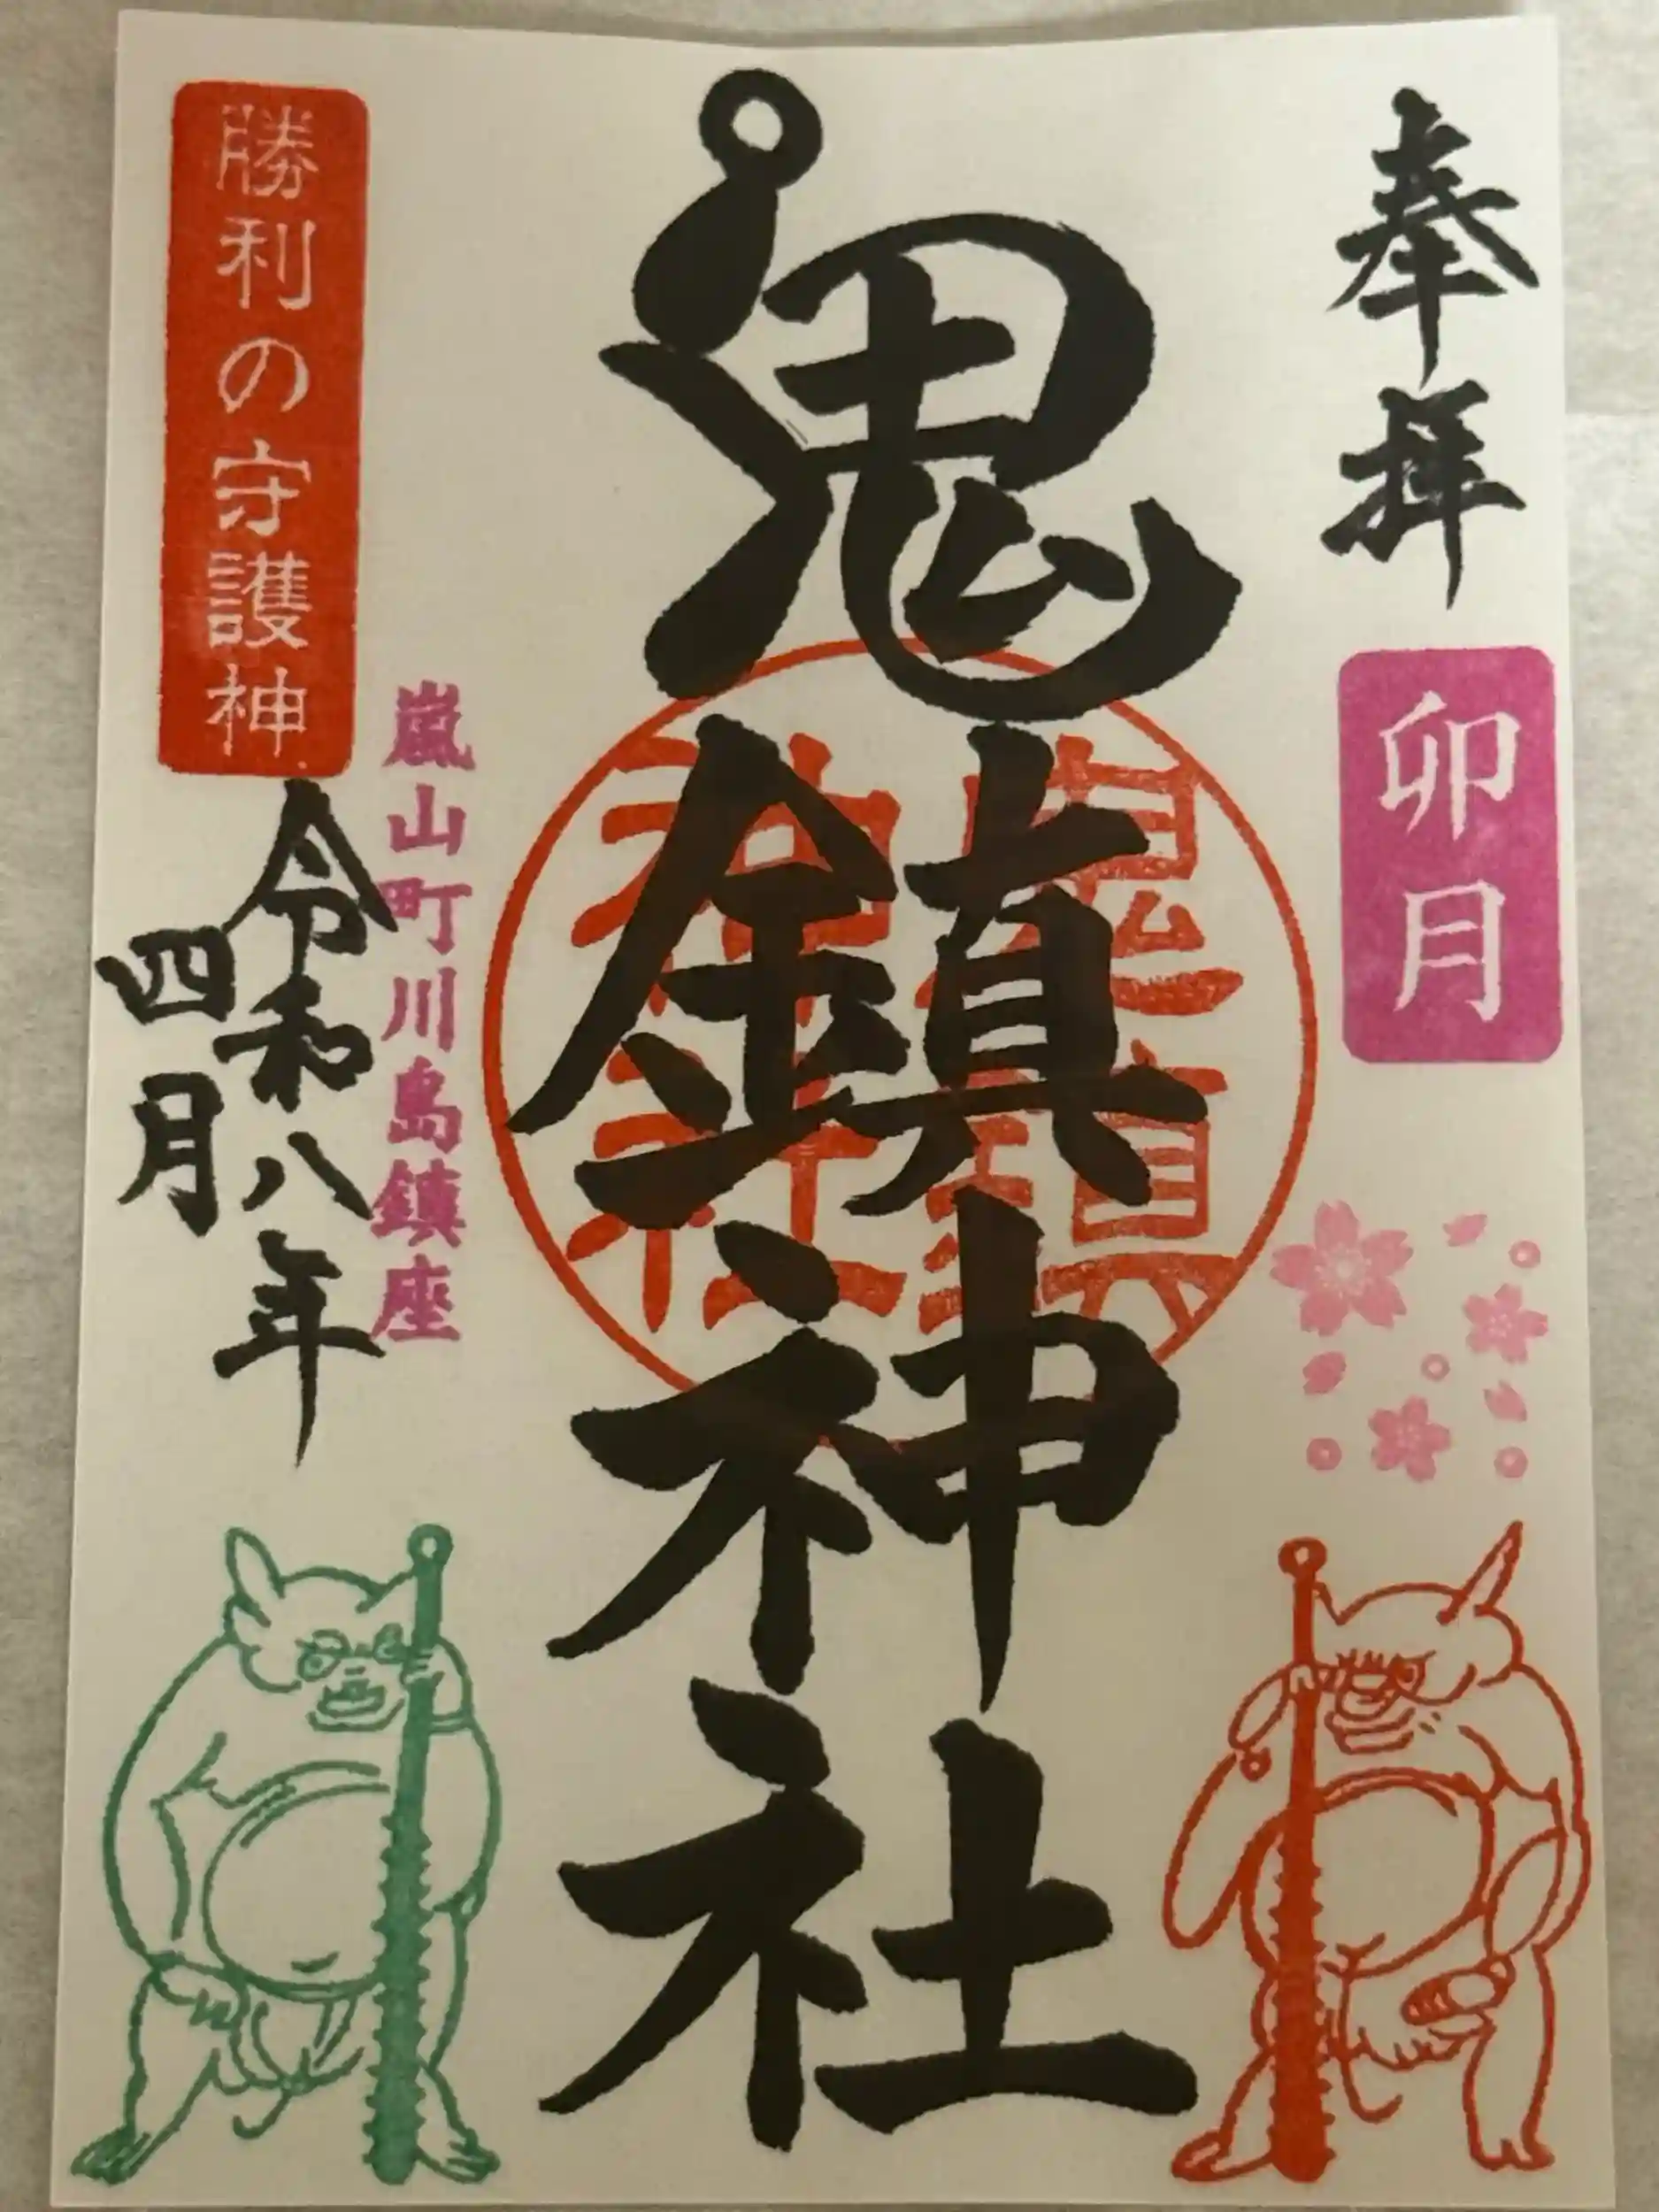 奉拝
卯月
鬼鎮神社
鬼鎮
神社
嵐山町川島鎮座
勝利の守護神
令和八年
四月